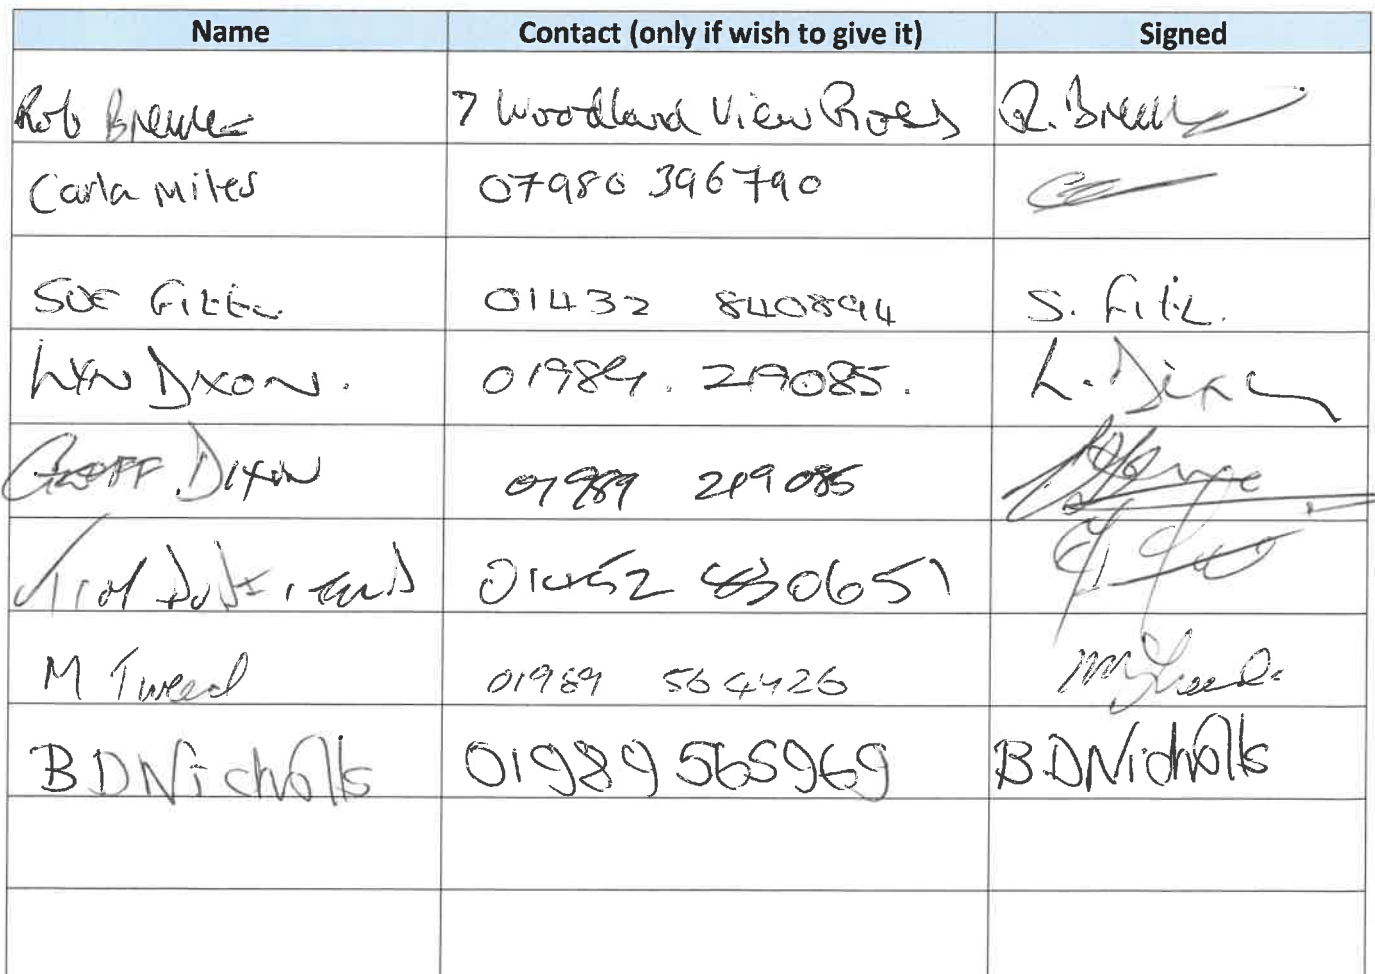 Name Contact (only if wish to give it) Signed
Rob 7 Woodland View Ross R.
Carla Miles 07980 396790
SUE 01432 840894 S. Fitz.
LYN DIXON. 01989. 219085. L. Dixon
GEOFF DIXON 01989 219085
01452 830651
M Tweed 01989 564426 M Tweed.
B D Nicholls 01989 565969 B D Nicholls